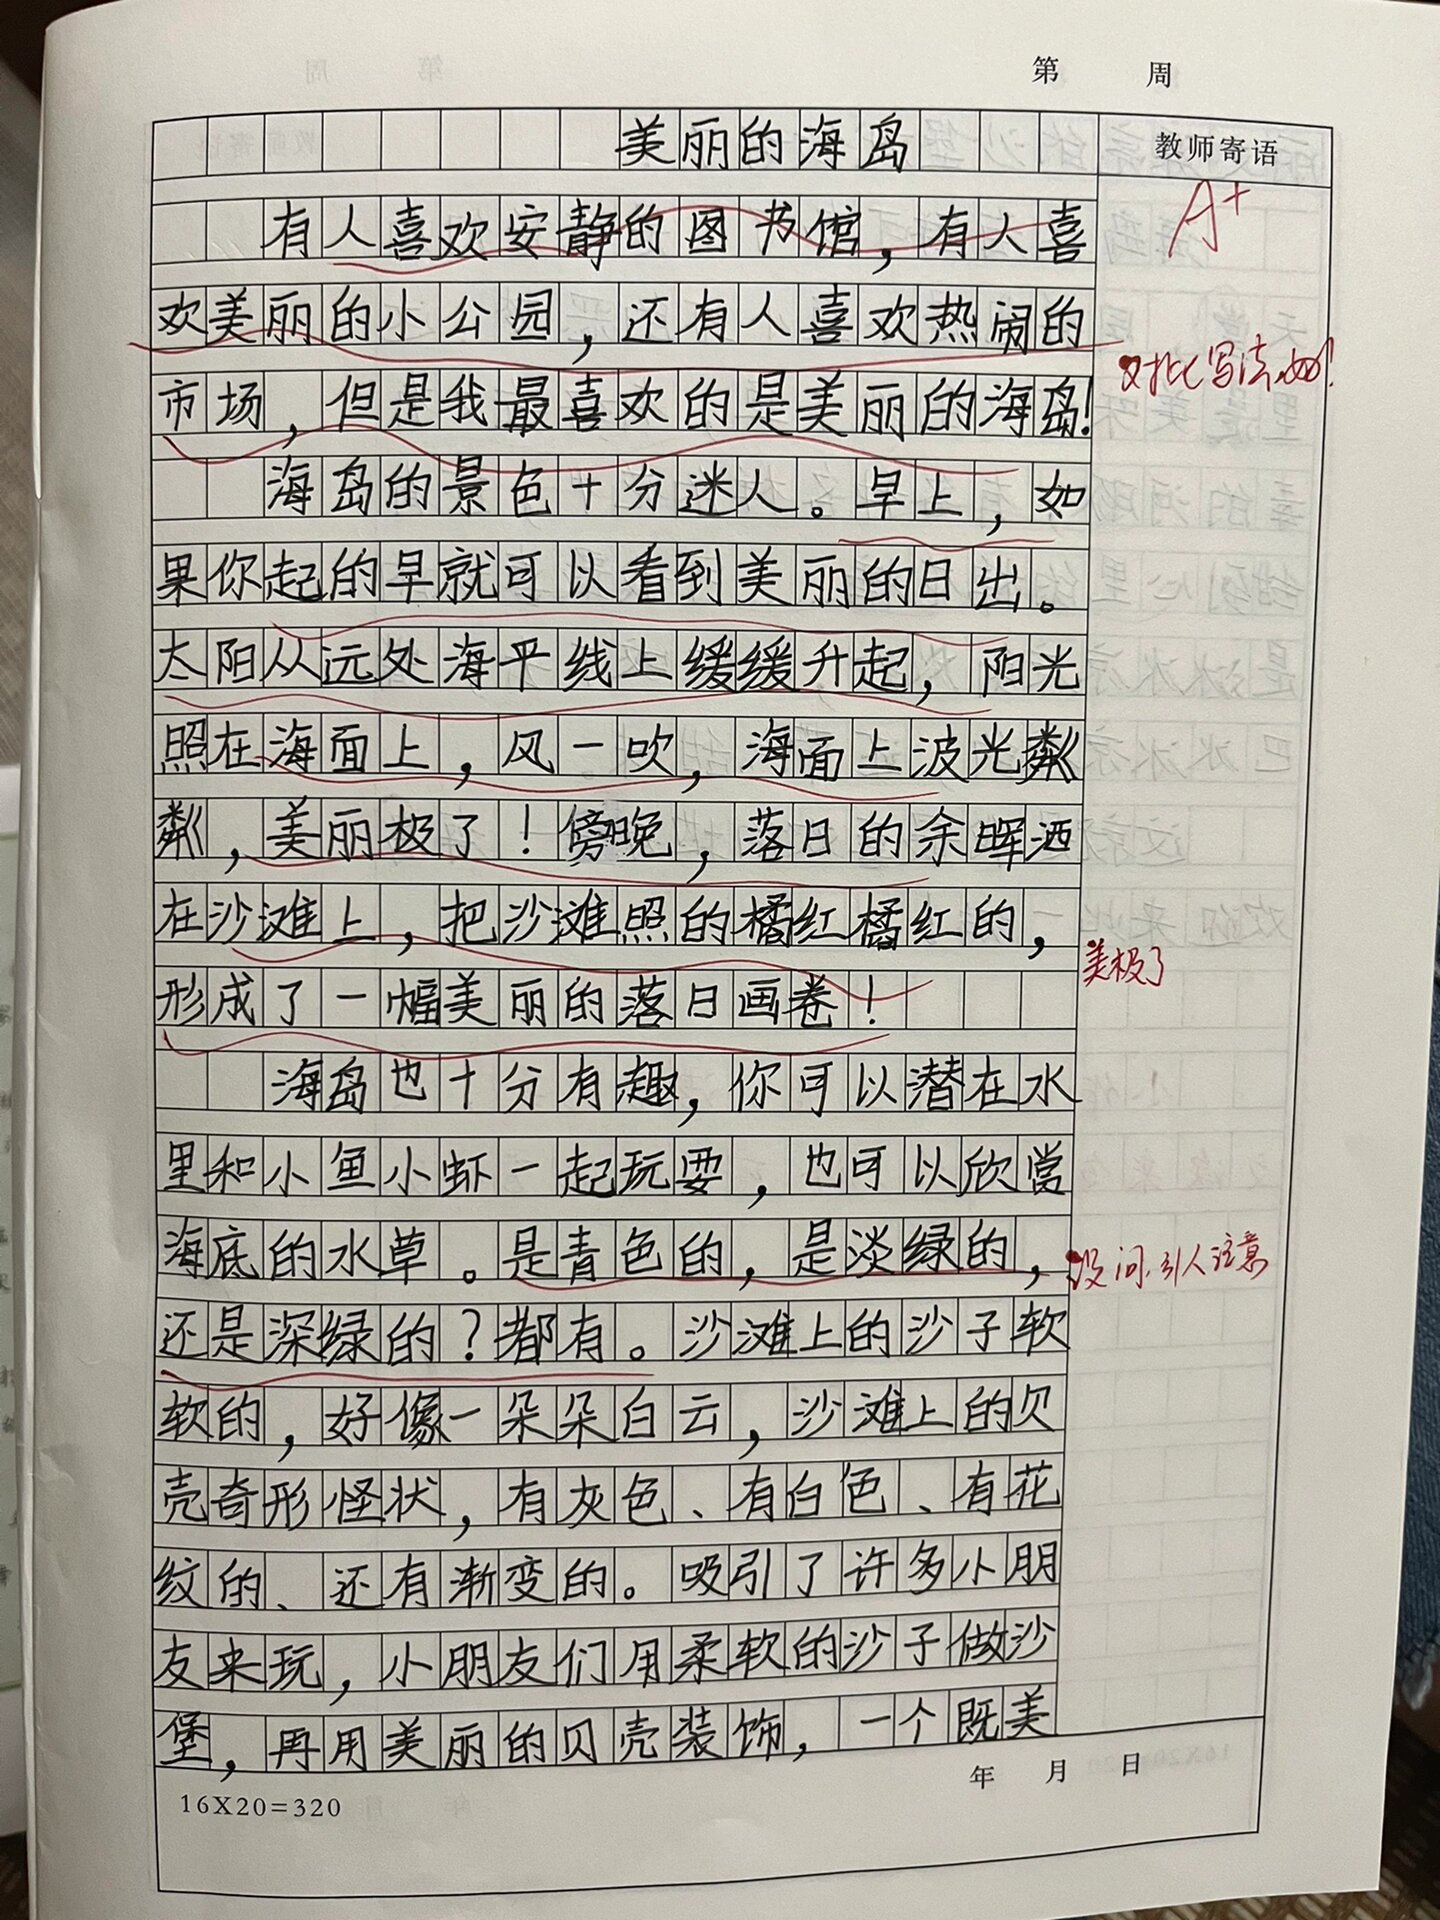 第 周
美丽的海岛
教师寄语
A+
有人喜欢安静的图书馆，有人喜
欢美丽的小公园，还有人喜欢热闹的
市场，但是我最喜欢的是美丽的海岛！
对比写法，妙！
海岛的景色十分迷人。早上，如
果你起的早就可以看到美丽的日出。
太阳从远处海平线上缓缓升起，阳光
照在海面上，风一吹，海面上波光粼
粼，美丽极了！傍晚，落日的余晖洒
在沙滩上，把沙滩照的橘红橘红的，
美极了
形成了一幅美丽的落日画卷！
海岛也十分有趣，你可以潜在水
里和小鱼小虾一起玩耍，也可以欣赏
海底的水草。是青色的，是淡绿的，
设问，引人注意
还是深绿的？都有。沙滩上的沙子软
软的，好像一朵朵白云，沙滩上的贝
壳奇形怪状，有灰色、有白色、有花
纹的、还有渐变的。吸引了许多小朋
友来玩，小朋友们用柔软的沙子做沙
堡，再用美丽的贝壳装饰，一个既美
年 月 日
16X20=320